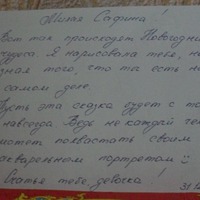 Милая Сафина!
Вот так происходят Новогодние
чудеса. Я нарисовала тебя, не
зная того, что ты есть на
самом деле.
Пусть эта сказка будет с то
навсегда. Ведь не каждый чел
может похвастать своим
акварельным портретом
Счастья тебе, девочка!
31.12